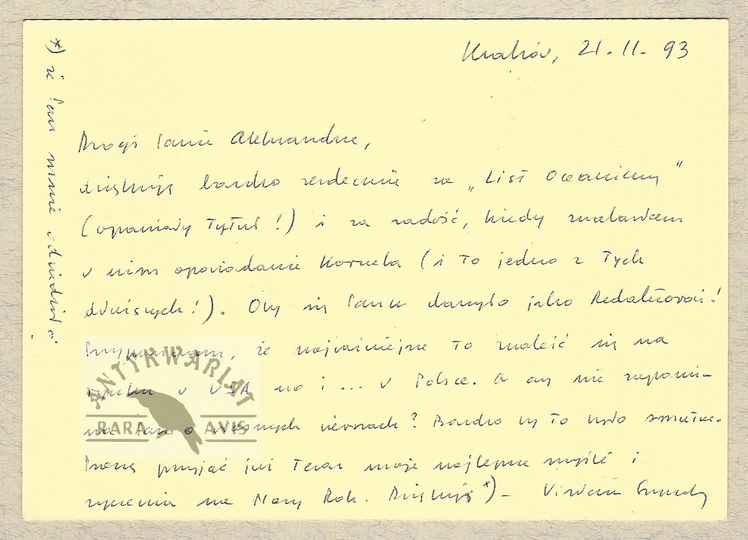 Kraków, 21.11.93
Drogi Panie Aleksandrze,
dziękuję bardzo serdecznie za „List Oceaniczny”
(wspaniały tytuł!) i za radość, kiedy znalazłam
w nim opowiadanie Kornela (i to jedno z tych
dziwnych!). Oby się Panu darzyło jako Redaktorowi!
Przypuszczam, że najważniejsze to znaleźć się na
rynku w USA no i ... w Polsce. A czy nie zapomi-
na Pan o własnych wierszach? Bardzo by to było smutne.
Proszę przyjąć już teraz moje najlepsze myśli i
życzenia na Nowy Rok. Dziękuję *) –
*) że Pan mnie odwiedził
ANTYKWARIAT
RARA AVIS